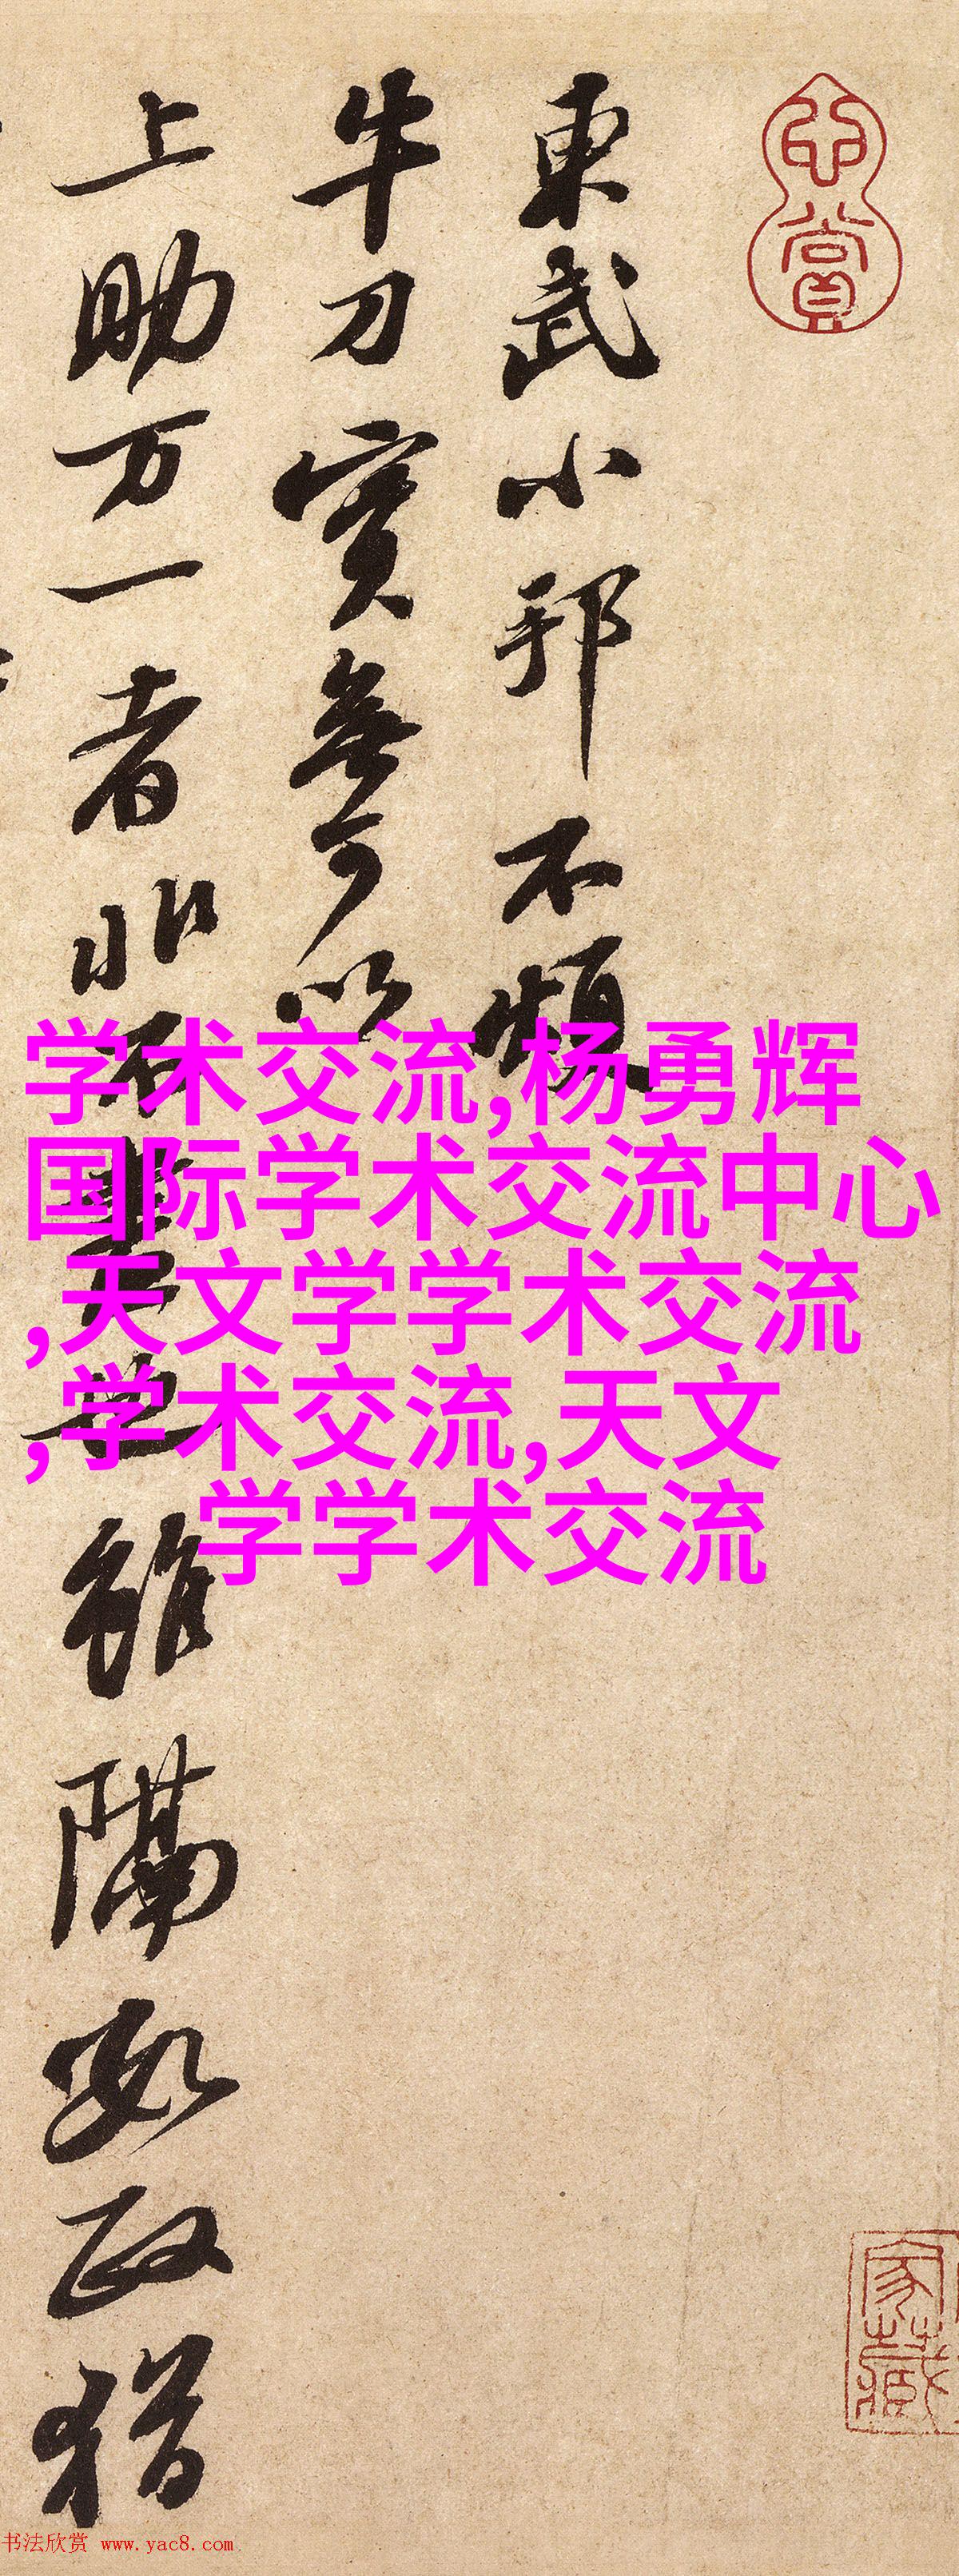 東武小邦不煩
牛刀實無可以
上助万一者非不盡也雖隔數政猶
心賞
家藏
学术交流,杨勇辉
国际学术交流中心
,天文学学术交流
,学术交流,天文
学学术交流
书法欣赏 www.yac8.com